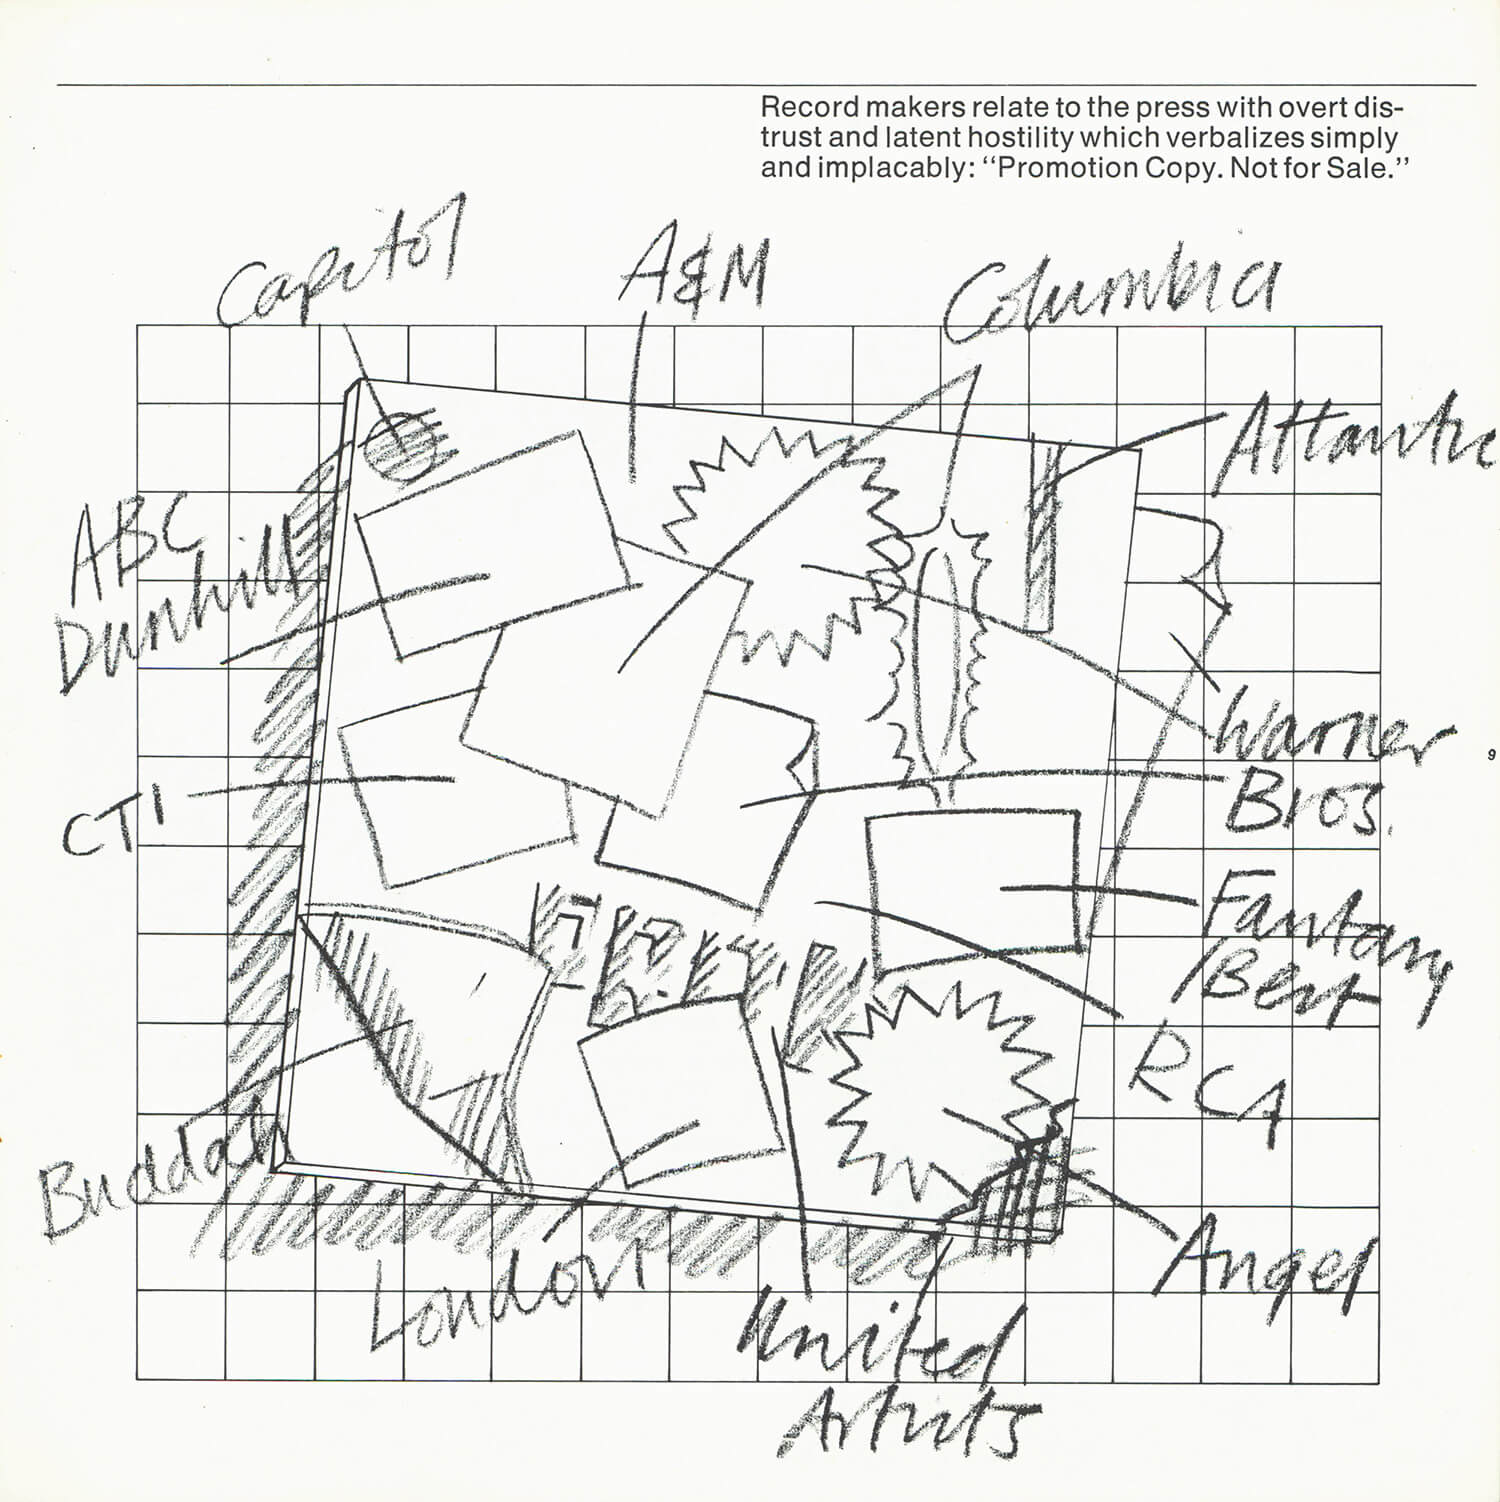 Record makers relate to the press with overt dis-
trust and latent hostility which verbalizes simply
and implacably: “Promotion Copy. Not for Sale.”
Capitol
A&M
Columbia
Atlantic
ABC
Dunhill
Warner
Bros.
9
CTI
Fantasy
/Best
RCA
Buddah
London
Angel
United
Artists